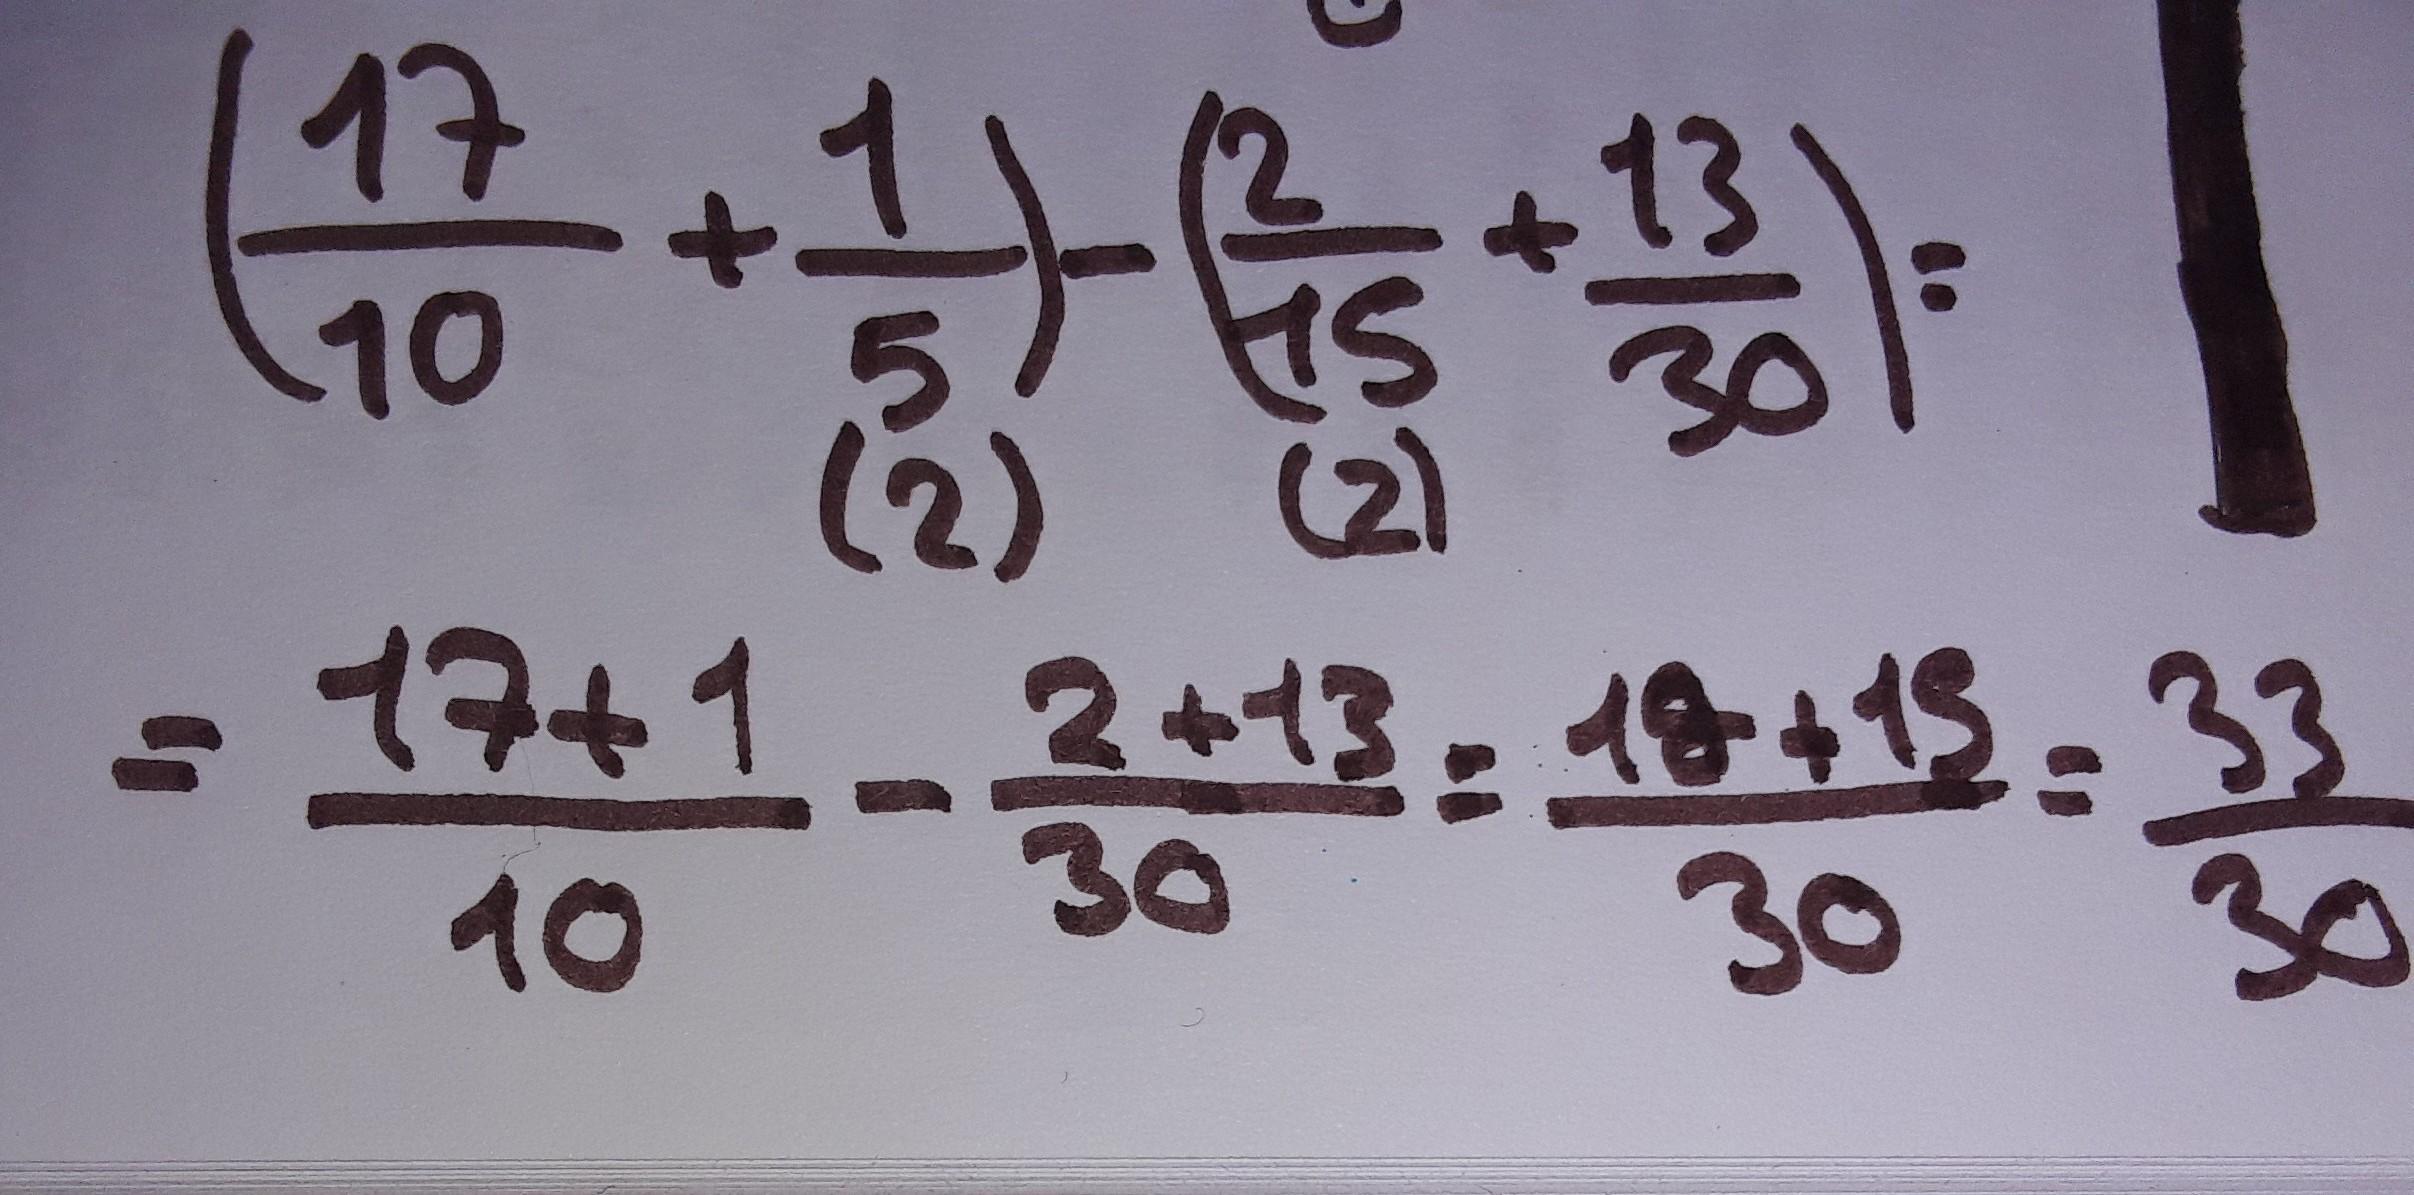 (17/10 + 1/5) - (2/15 + 13/30) =
(2) (2)
= 17+1/10 - 2+13/30 = 18+15/30 = 33/30